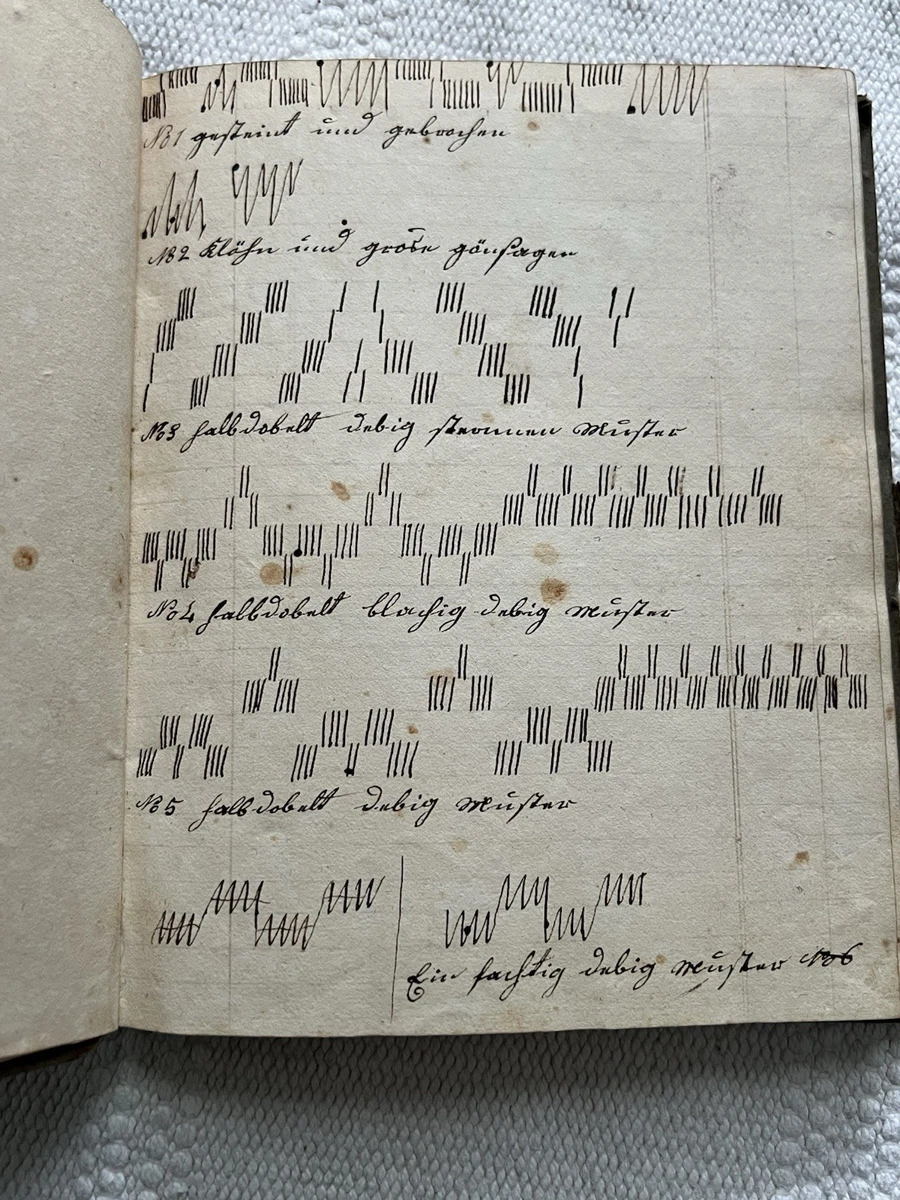 No 1 gesteint und gebrochen
No 2 Klöhn und grose gönsagen
No 3 halbdobelt debig sternnen Muster
No 4 halbdobelt blachig debig Muster
No 5 halbdobelt debig Muster
Ein fachtig debig Muster No 6